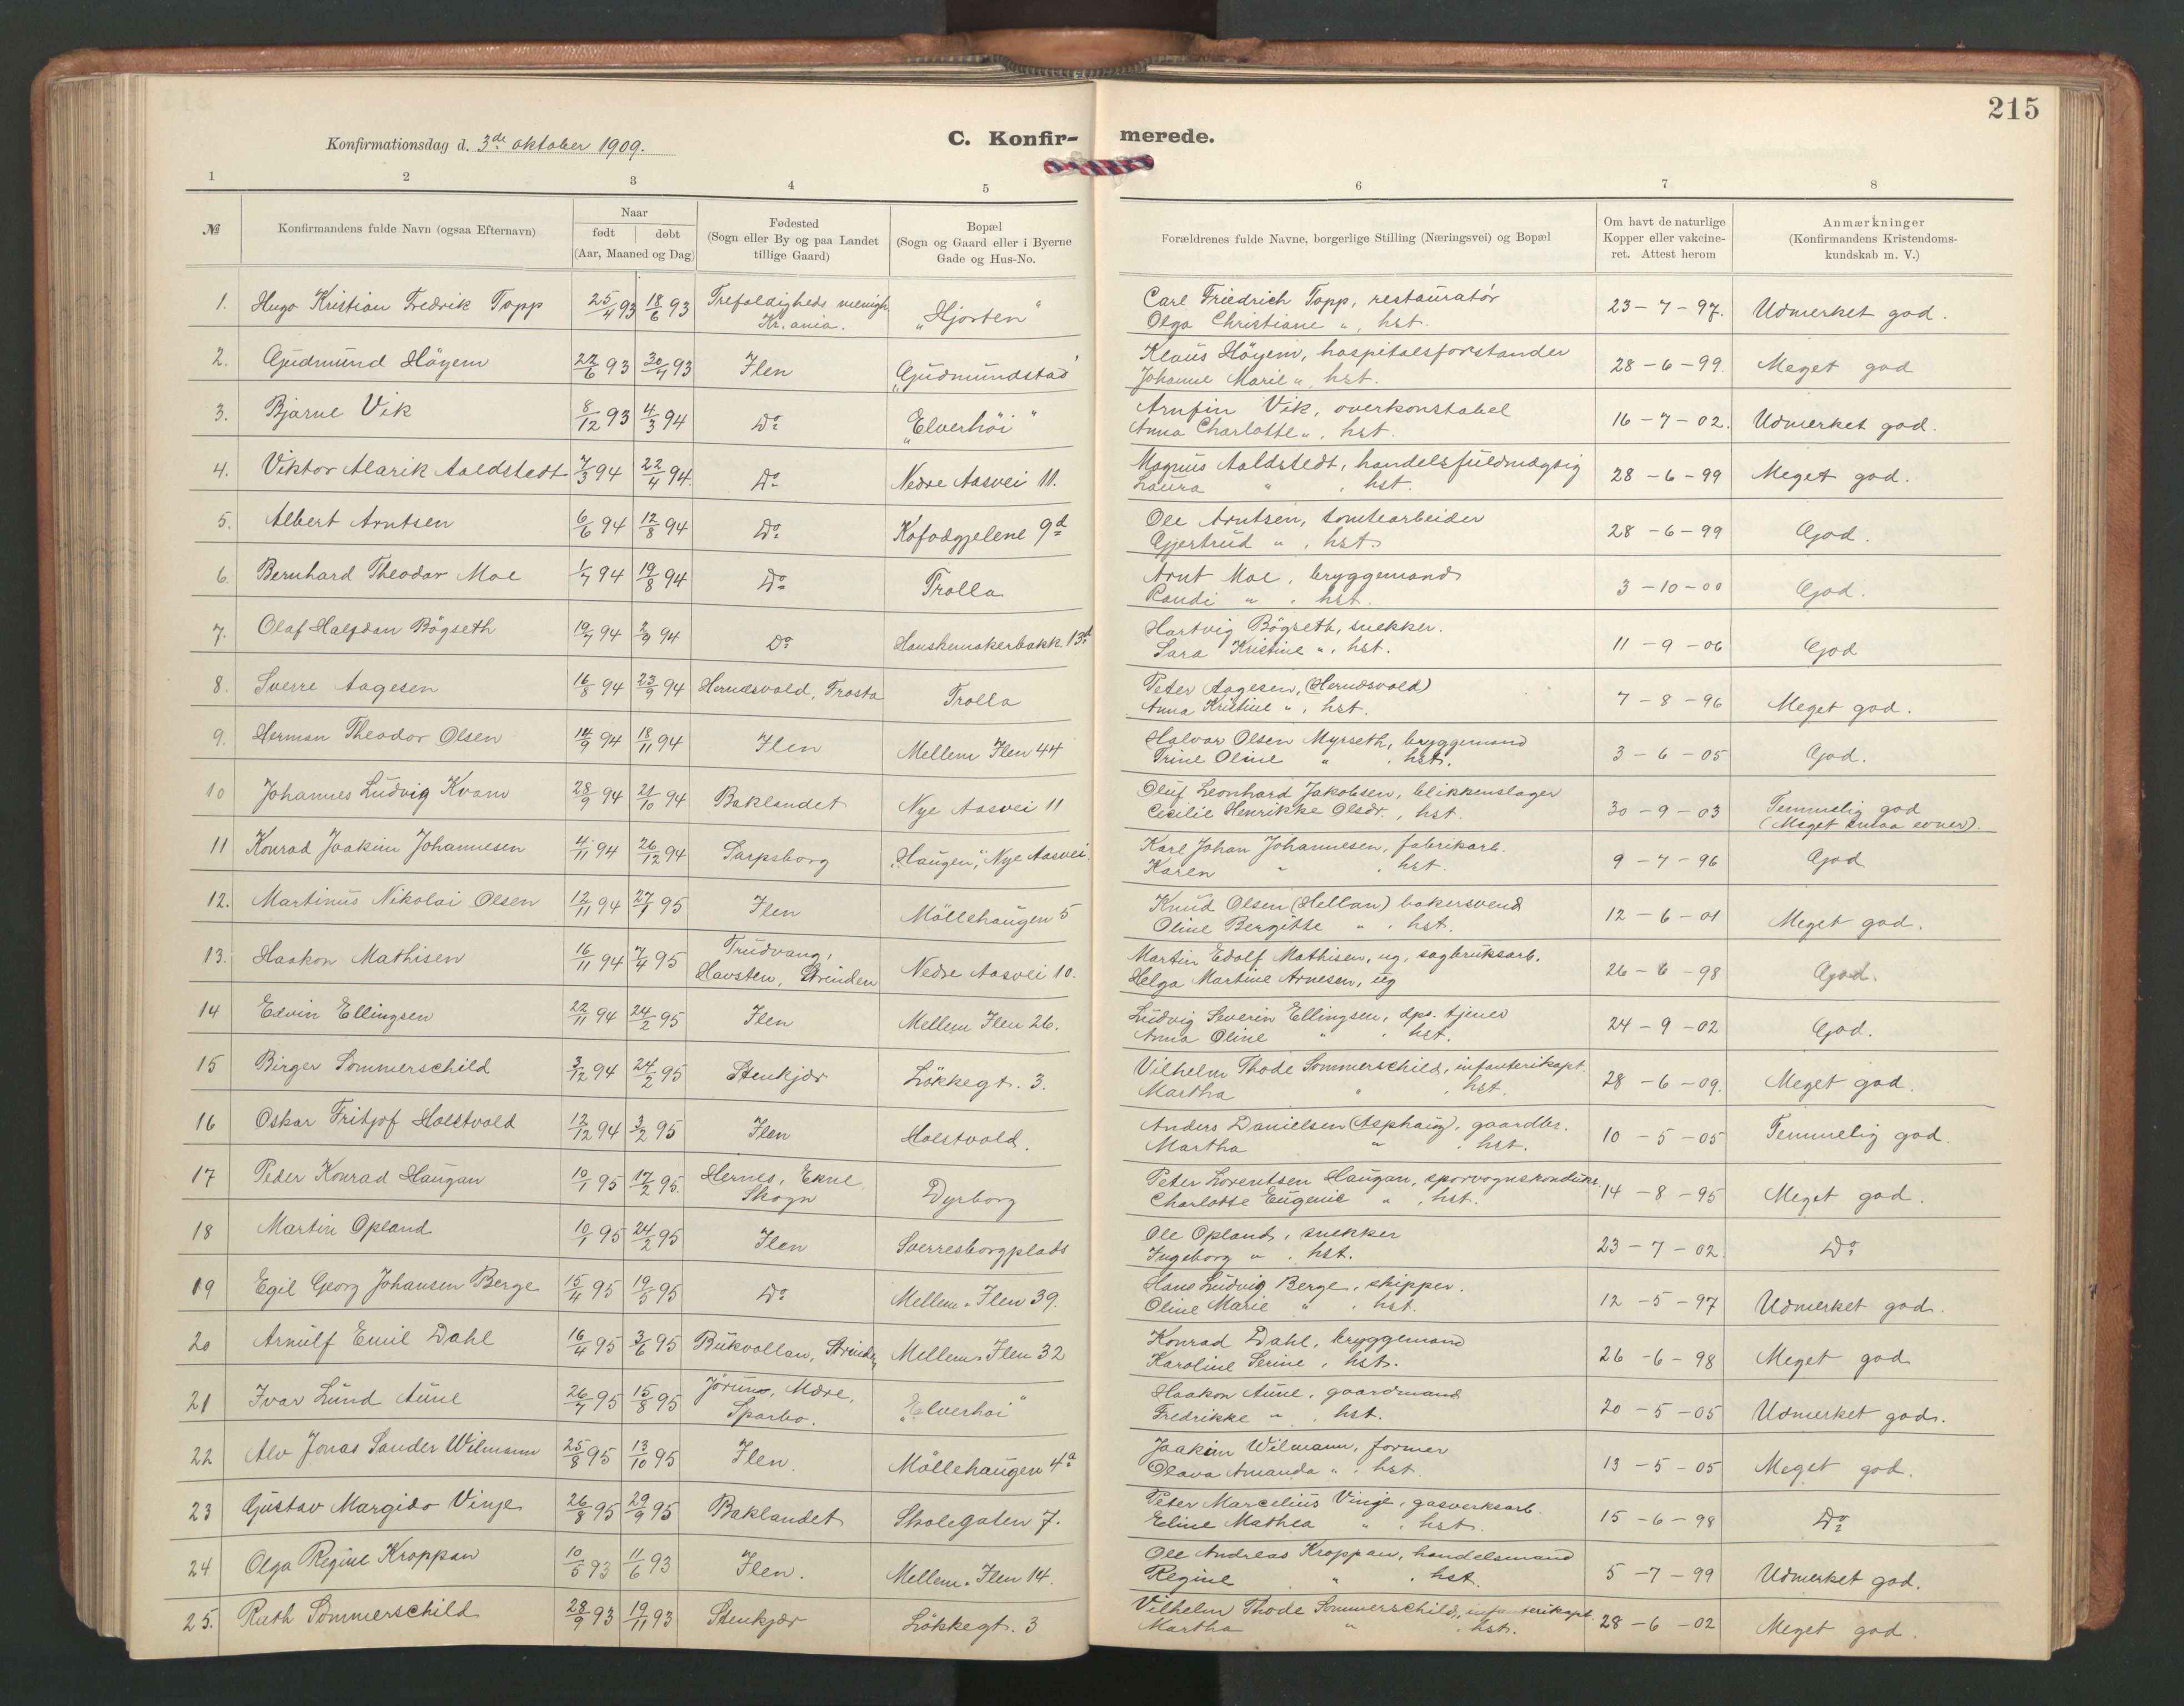 215
Konfirmationsdag d. 3de oktober 1909.
C. Konfir- merede.
1 2 3 4 5 6 7 8
№ Konfirmandens fulde Navn (ogsaa Efternavn) Naar født døbt (Aar, Maaned og Dag) Fødested (Sogn eller By og paa Landet tillige Gaard) Bopæl (Sogn og Gaard eller i Byerne Gade og Hus-No. Forældrenes fulde Navne, borgerlige Stilling (Næringsvei) og Bopæl Om havt de naturlige Kopper eller vakcineret. Attest herom Anmærkninger (Konfirmandens Kristendomskundskab m. V.)
1. Hugo Kristian Fredrik Topp 25/4 93 18/6 93 Trefoldigheds menigh. Kr.ania. „Hjorten" Carl Friedrich Topp, restauratör
Olga Christiane „, hst. 23-7-97. Udmerket god.
2. Gudmund Höyem 22/6 93 30/7 93 Ilen „Gudmundstad' Klaus Höyem, hospitalsforstander
Johanne Marie „, hst. 28-6-99. Meget god
3. Bjarne Vik 8/12 93 4/3 94 Do „Elverhöi" Arnfin Vik, overkonstabel
Anna Charlotte „, hst. 16-7-02. Udmerket god.
4. Viktor Alarik Aaldstedt 7/3 94 22/4 94. Do Nedre Aasvei 11. Magnus Aaldstedt, handelsfuldmægtig
Laura „, hst. 28-6-99 Meget god.
5. Albert Arntsen 6/6 94 12/8 94 Do Kofodgjelene 9d Ole Arntsen, tomtearbeider
Gjertrud „, hst. 28-6-99 God.
6. Bernhard Theodor Moe 1/7 94 19/8 94 Do Trolla Arnt Moe, bryggemand
Randi „, hst. 3-10-00 God.
7. Olaf Halfdan Bögseth 19/7 94 2/9 94 Do Hanskemakerbakk. 13d Hartvig Bögseth, snekker.
Sara Kristine „, hst. 11-9-06 God
8. Sverre Aagesen 16/8 94 23/9 94 Hernæsvold, Frosta Trolla Peter Aagesen, (Hernæsvold)
Anna Kristine „, hst. 7-8-96 Meget god.
9. Herman Theodor Olsen 14/9 94 18/11 94 Ilen Mellem Ilen 44 Halvor Olsen Myrseth, bryggemand
Trine Oline „, hst. 3-6-05 God.
10 Johannes Ludvig Kvam 28/9 94 21/10 94 Baklandet Nye Aasvei 11 Oluf Leonhard Jakobsen, blikkenslager
Cecilie Henrikke Olsdr., hst. 30-9-03 Temmelig god
(Meget smaa evner).
11 Konrad Joakim Johannesen 4/11 94 26/12 94 Sarpsborg „Haugen", Nye Aasvei. Karl Johan Johannesen, fabrikarb.
Karen „, hst. 9-7-96 God
12. Martinus Nikolai Olsen 12/11 94 27/1 95 Ilen Möllehaugen 5 Knud Olsen (Hellan) bakersvend
Oline Bergitte „, hst. 12-6-01 Meget god.
13. Haakon Mathisen 16/11 94 7/4 95 Trudvang,
Havsten, Strinden Nedre Aasvei 10. Martin Edolf Mathisen, ug, sagbruksarb.
Helga Martine Arnesen, ug 26-6-98 God.
14 Edvin Ellingsen 22/11 94 24/2 95 Ilen Mellem Ilen 26. Ludvig Severin Ellingsen, dps. tjener
Anna Oline „, hst. 24-9-02 God.
15 Birger Sommerschild 3/12 94 24/2 95 Stenkjær Lökkegt. 3. Vilhelm Thode Sommerschild, infanterikapt.
Martha „, hst. 28-6-09. Meget god.
16 Oskar Fritjof Holstvold 12/12 94 3/2 95 Ilen Holstvold. Anders Danielsen (Asphaug), gaardbr.
Martha „, hst. 10-5-05 Temmelig god.
17 Peder Konrad Haugan 10/1 95 17/2 95. Hernes, Ekne
Skogn Dyrborg Peter Lorentsen Haugan, sporvognskonduktr
Charlotte Eugenie „, hst. 14-8-95 Meget god.
18 Martin Opland 10/1 95 24/2 95 Ilen Sverresborgplads Ole Opland, snekker
Ingeborg „, hst. 23-7-02. Do
19 Egil Georg Johansen Berge 15/4 95 19/5 95 Do Mellem Ilen 39. Hans Ludvig Berge, skipper.
Oline Marie „, hst. 12-5-97 Udmerket god.
20 Arnulf Emil Dahl 16/4 95 3/6 95 Bukvollan, Strinden Mellem Ilen 32 Konrad Dahl, bryggemand
Karoline Serine, hst. 26-6-98 Meget god
21 Ivar Lund Aune 26/7 95 15/8 95 Jörum, Mære,
Sparbo. „Elverhöi" Haakon Aune, gaardmand
Fredrikke „, hst. 20-5-05 Udmerket god.
22 Alv Jonas Sander Wilmann 25/8 95 13/10 95 Ilen. Möllehaugen 4a Joakim Wilmann, former
Olava Amanda „, hst. 13-5-05 Meget god.
23 Gustav Margido Vinje 26/8 95 29/9 95 Baklandet Skolegaten 7. Peter Marcelius Vinje, gasverksarb.
Eline Mathea „, hst. 15-6-98 Do
24 Olga Regine Kroppan 10/5 93 11/6 93 Ilen. Mellem Ilen 14. Ole Andreas Kroppan, handelsmand
Regine „, hst. 5-7-99 Udmerket god.
25. Ruth Sommerschild 28/9 93 19/11 93 Stenkjær Lökkegt. 3 Vilhelm Thode Sommerschild, infanterikapt.
Martha „, hst. 28-6-02 Meget god.